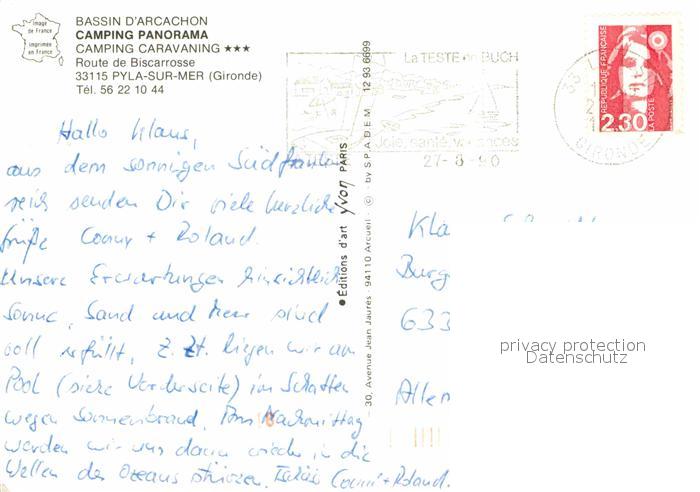 Image
de France
imprimée
en France
BASSIN D'ARCACHON
CAMPING PANORAMA
CAMPING CARAVANING ★★★
Route de Biscarrosse
33115 PYLA-SUR-MER (Gironde)
Tél. 56 22 10 44
Hallo Klaus,
aus dem sonnigen Südfrank
reich senden Dir viele herzliche
Grüße Conny + Roland.
Unsere Erwartungen hinsichtlich
Sonne, Sand und Meer sind
voll erfüllt, z. Zt. liegen wir am
Pool (siehe Vorderseite) im Schatten
wegen Sonnenbrand. Am Nachmittag
werden wir uns dann wieder in die
Wellen des Ozeans stürzen. Tschüss Conny + Roland.
●Éditions d'art yvon PARIS
30, Avenue Jean Jaurès, 94110 Arcueil - © - by S.P.A.D.E.M 12 93 6699
La TESTE de BUCH
Joie, santé, vacances
27-8-90
33 L
GIRONDE
RÉPUBLIQUE FRANÇAISE
2,30
LA POSTE
Kla
Burg
633
Allen
privacy protection
Datenschutz